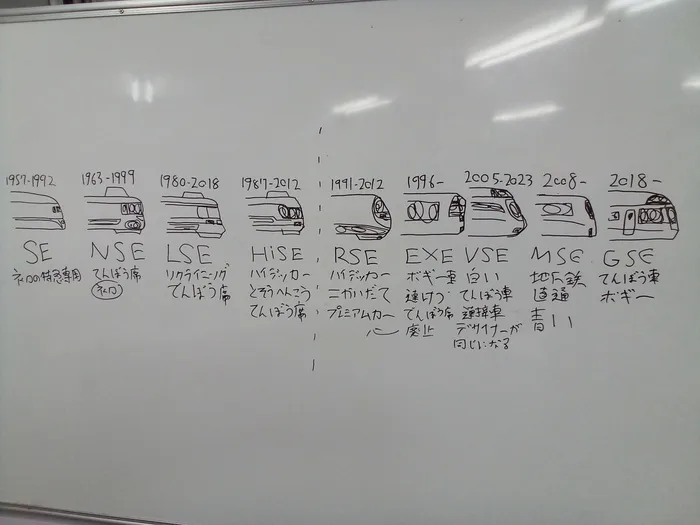 1957-1992
SE
ネ口の特急専用
1963-1999
NSE
てんぼう席
ネ口
1980-2018
LSE
リクライニング
てんぼう席
1987-2012
HiSE
ハイデッカー
とそうへんこう
てんぼう席
1991-2012
RSE
ハイデッカー
二かいだて
プレミアムカー
1996-
EXE
ボギー車
連けつ
てんぼう席
廃止
2005-2023
VSE
白い
てんぼう車
連接車
デザイナーが
同じになる
2008-
MSE
地下鉄
直通
青い
2018-
GSE
てんぼう車
ボギー